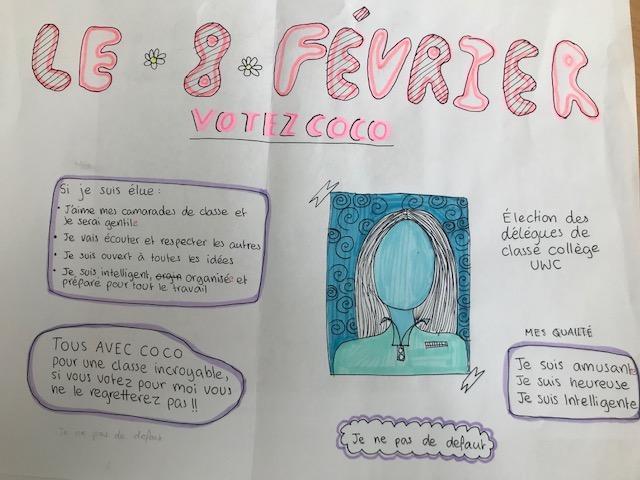 LE 8 FÉVRIER
VOTEZ COCO
Si je suis élue :
• J'aime mes camarades de classe et
je serai gentile
• Je vais écouter et respecter les autres
• Je suis ouvert à toutes les idées
• Je suis intelligent, orgin organisée et
prépare pour tout le travail
Élection des
délégues de
classe collège
UWC
TOUS AVEC COCO
pour une classe incroyable,
si vous votez pour moi vous
ne le regretterez pas !!
MES QUALITÉ
Je suis amusante
Je suis heureuse
Je suis Intelligente
Je ne pas de defaut
Je ne pas de defaut